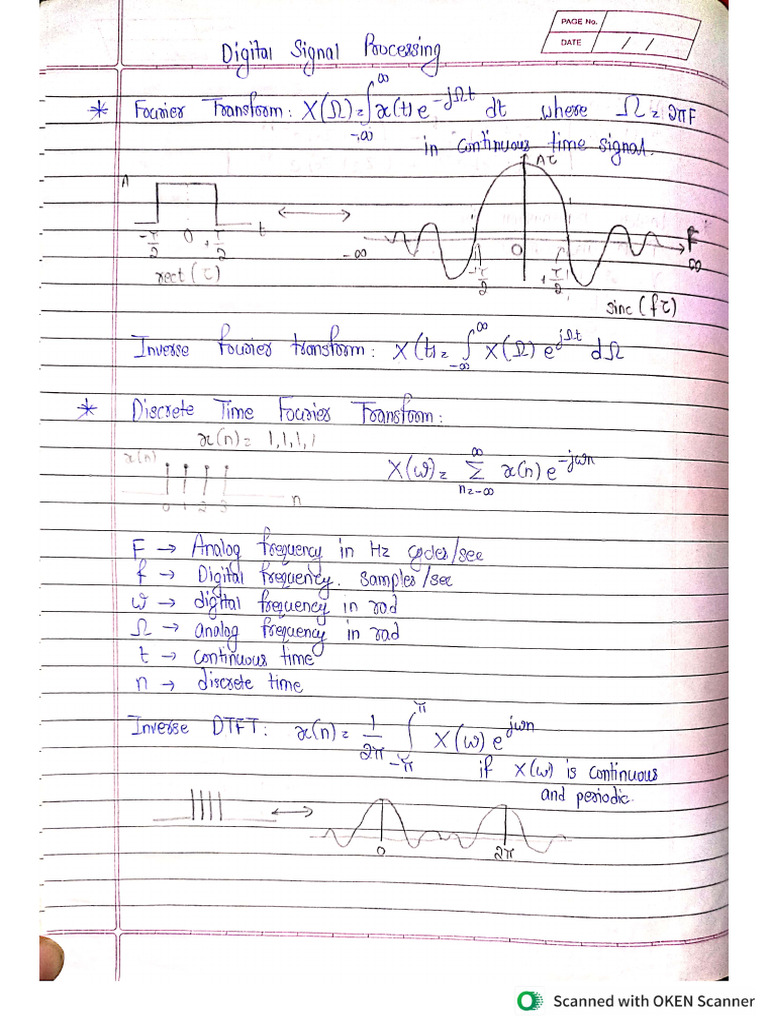 PAGE No.
DATE / /
Digital Signal Processing
* Fourier Transform: X(Ω) = ∫_{-∞}^{∞} x(t) e^{-jΩt} dt where Ω = 2πF
in continuous time signal.
A
-τ/2 0 +τ/2 t
rect(τ)
Aτ
-∞ -τ/2 0 +τ/2 F ∞
sinc(fτ)
Inverse fourier transform: X(t) = ∫_{-∞}^{∞} X(Ω) e^{jΩt} dΩ
* Discrete Time Fourier Transform:
x(n) = 1,1,1,1
x(n)
0 1 2 3 n
X(ω) = Σ_{n=-∞}^{∞} x(n) e^{-jωn}
F → Analog frequency in Hz cycles/sec
f → Digital frequency. samples/sec
ω → digital frequency in rad
Ω → analog frequency in rad
t → continuous time
n → discrete time
Inverse DTFT: x(n) = 1/2π ∫_{-π}^{π} X(ω) e^{jωn}
if X(ω) is continuous
and periodic.
0 2π
Scanned with OKEN Scanner